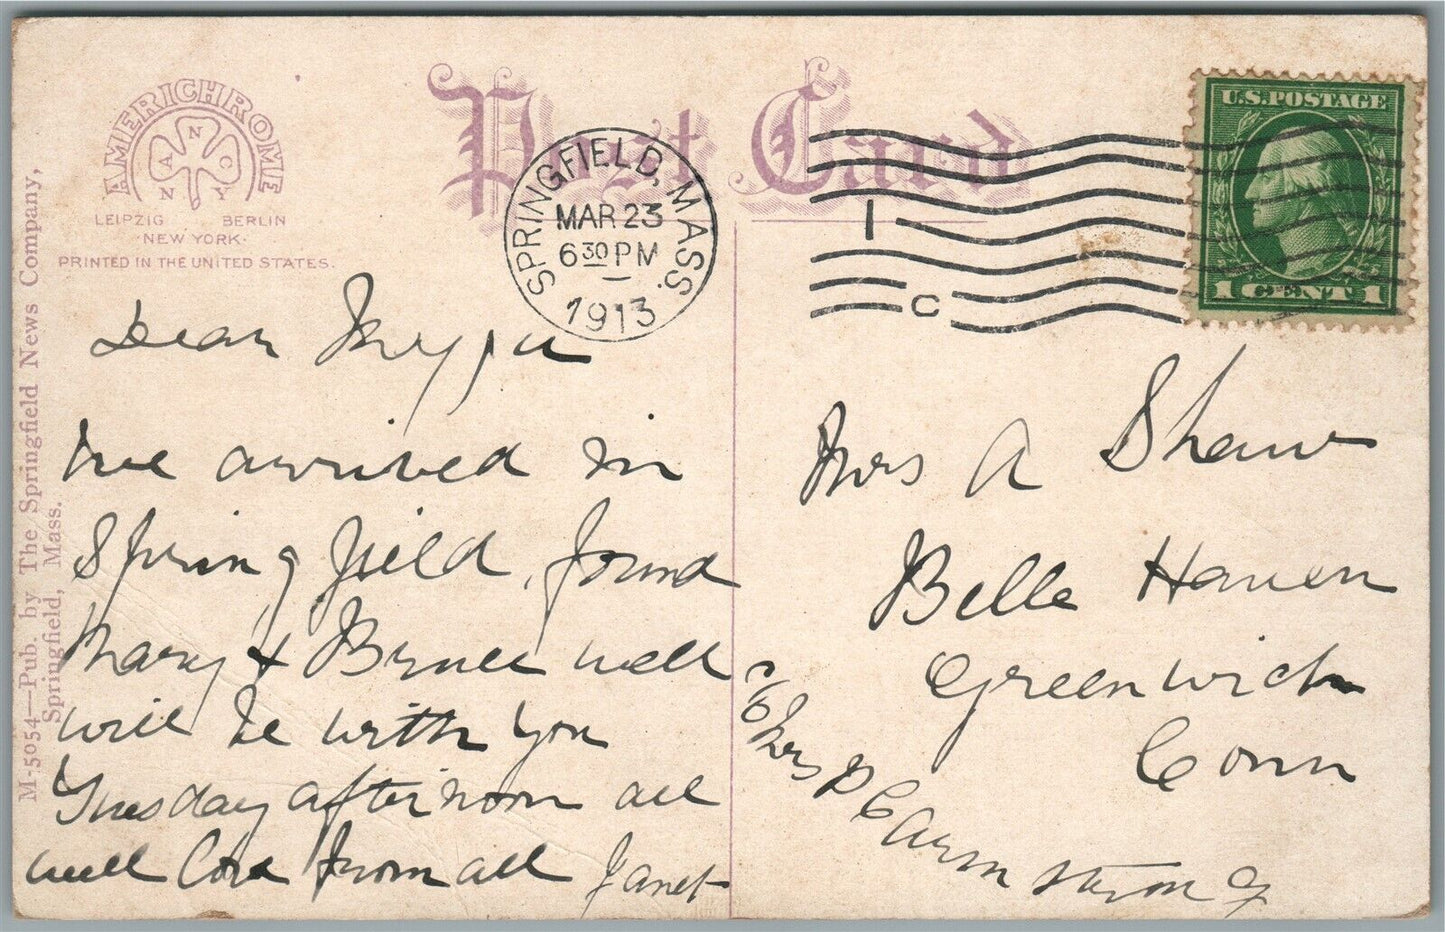 AMERICHROME
A N C
N Y
LEIPZIG BERLIN
·NEW YORK·
PRINTED IN THE UNITED STATES.
Post Card
SPRINGFIELD, MASS.
MAR 23
6 30 PM
1913
1
C
U.S. POSTAGE
1 CENT 1
M-5054—Pub. by The Springfield News Company,
Springfield, Mass.
Dear
arrived in
Springfield, found
Mary + Bruce well
will be with you
Tuesday afternoon all
well Love from all Janet
Mrs A Shaw
Belle Haven
Greenwich
Conn
℅ Mrs D C Armstrong